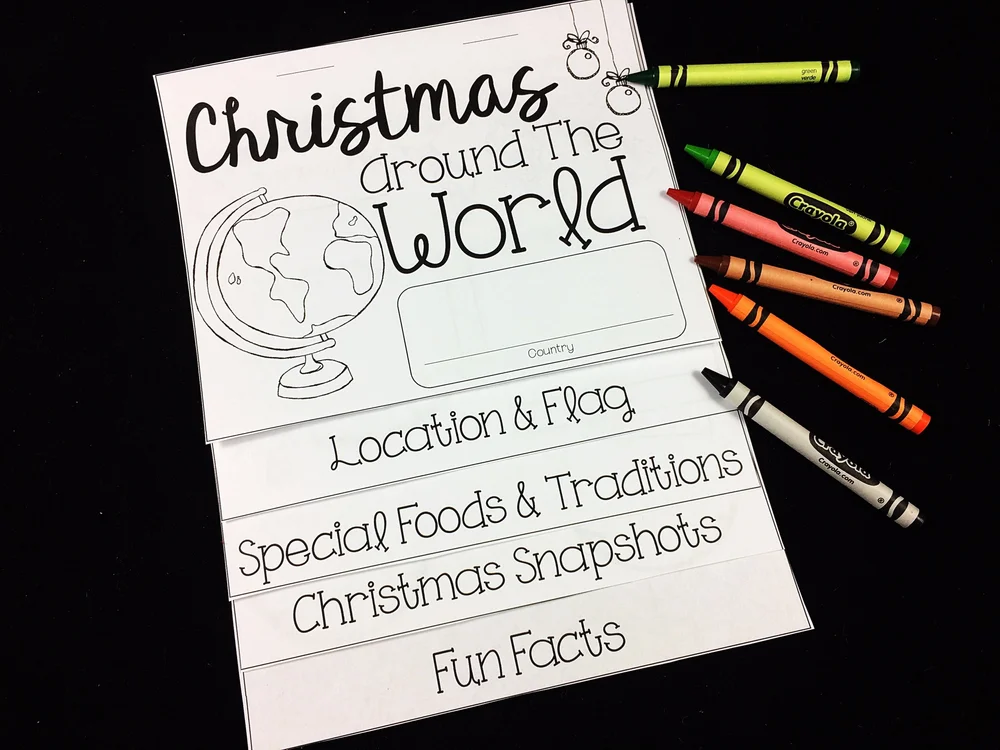 Christmas
around The
World
Country
Location & Flag
Special Foods & Traditions
Christmas Snapshots
Fun Facts
green
verde
Crayola
Crayola
Crayola.com
Crayola.com
Crayola
Crayola.com